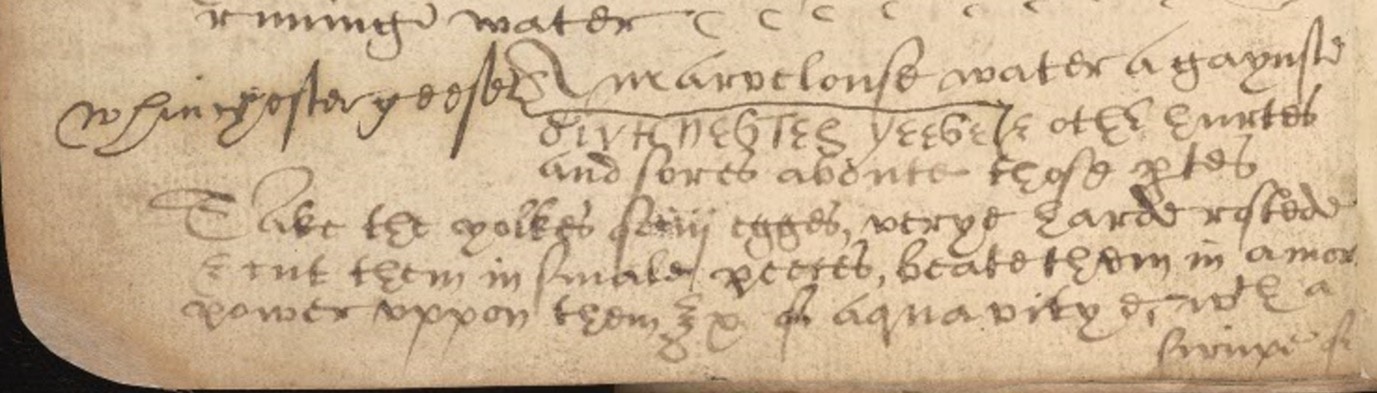 runinge water
whinchester geese A marvelouse water agaynste
& othr hurtes
and sores aboute those ptes
Take the yolkes of iiij egges, verye harde rosted
& cut them in smale peeces, beate them in a mor
power uppon them ʒ x of aqua vitye, wth a